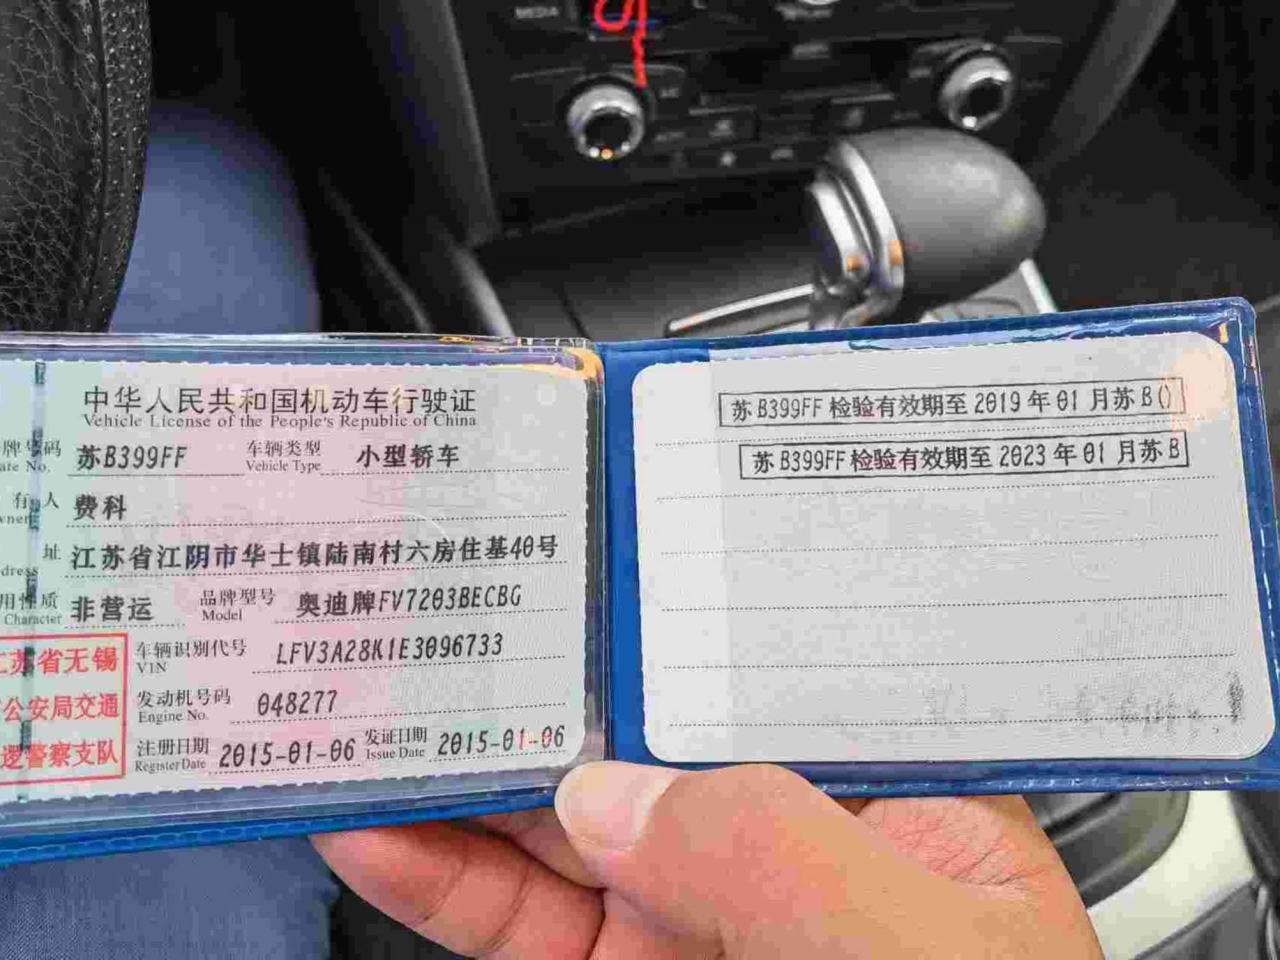 MEDIA
中华人民共和国机动车行驶证
Vehicle License of the People's Republic of China
牌号码 苏B399FF 车辆类型 小型轿车
ate No. Vehicle Type
有人 费科
wner
址 江苏省江阴市华士镇陆南村六房住基40号
dress
用性质 非营运 品牌型号 奥迪牌FV7203BECBG
Character Model
车辆识别代号 LFV3A28K1E3096733
VIN
发动机号码 048277
Engine No.
注册日期 2015-01-06 发证日期 2015-01-06
Register Date Issue Date
江苏省无锡
公安局交通
逻警察支队
苏B399FF检验有效期至2019年01月苏B()
苏B399FF检验有效期至2023年01月苏B